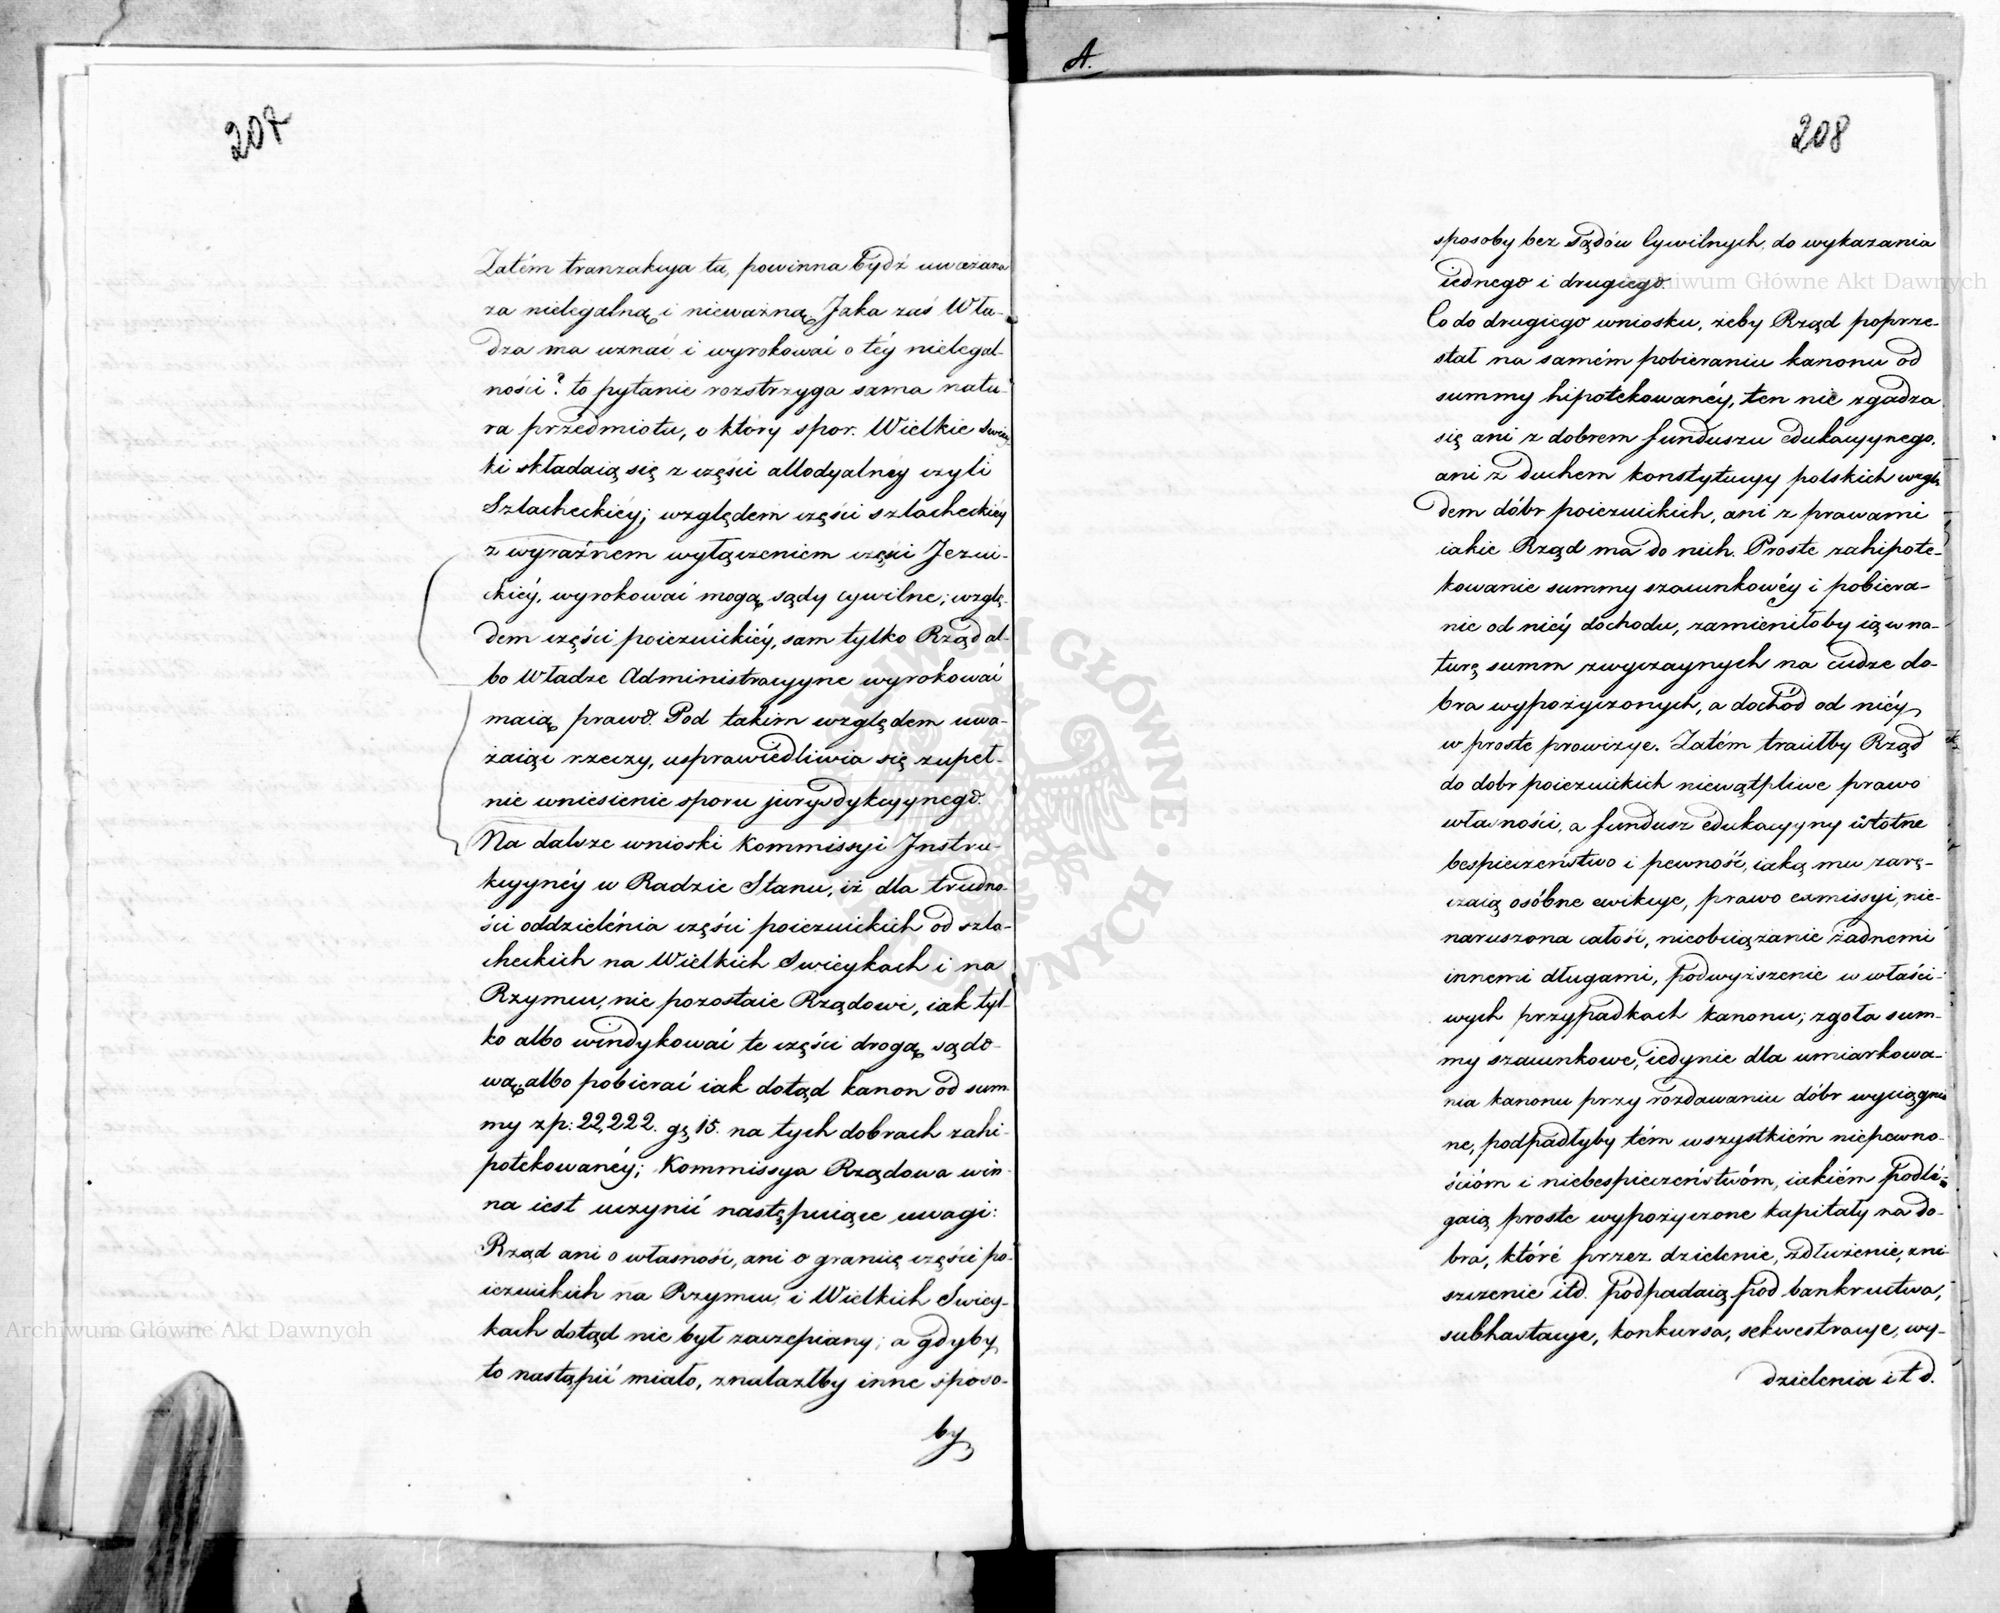 207
Zatém tranzakcya ta, powinna bydź uważana
za nielegalną i nieważną. Jaka zaś Wła-
dza ma uznać i wyrokować o téy nielegal-
ności? to pytanie rozstrzyga sama natu-
ra przedmiotu, o który spor. Wielkie Swiecy-
ki składaią się z części allodyalnéy czyli
Szlacheckiéy; względem części szlacheckiéy
z wyraźnem wyłączeniem części Jezui-
ckiéy, wyrokować mogą sądy cywilne; wzglę-
dem części poiezuickiéy, sam tylko Rząd al-
bo Władze Administracyyne wyrokować
maią prawo. Pod takim względem uwa-
żaiąc rzeczy, usprawiedliwia się zupeł-
nie wniesienie sporu jurysdykcyynego.
Na dalsze wnioski Kommissyi Instru-
kcyynéy w Radzie Stanu, iż dla trudno-
ści oddzielénia części poiezuickich od szla-
checkich na Wielkich Swiecykach i na
Rzymcu, nie pozostaie Rządowi, iak tyl-
ko albo windykować te części drogą sądo-
wą, albo pobierać iak dotąd kanon od sum-
my zp: 22,222. gę 15. na tych dobrach zahi-
potekowanéy; Kommissya Rządowa win-
na iest uczynić następuiące uwagi:
Rząd ani o własność, ani o granicę części po-
iezuickich na Rzymcu i Wielkich Swiecy-
kach dotąd nie był zaczepiany; a gdyby
to nastąpić miało, znalazłby inne sposo-
by
A.
208
sposoby bez sądów Cywilnych, do wykazania
iednego i drugiego.
Co do drugiego wniosku, żeby Rząd poprze-
stał na samém pobieraniu kanonu od
summy hipotekowanéy, ten nie zgadza
się ani z dobrem funduszu edukacyynego,
ani z duchem konstytucyy polskich wzglę-
dem dóbr poiezuickich, ani z prawami
iakie Rząd ma do nich. Proste zahipote-
kowanie summy szacunkowéy i pobiera-
nie od niéy dochodu, zamieniłoby ią w na-
turę summ zwyczaynych na cudze do-
bra wypożyczonych, a dochód od niéy
w proste prowizye. Zatém traciłby Rząd
do dobr poiezuickich niewątpliwe prawo
własności, a fundusz edukacyyny istotne
bespieczeństwo i pewność, iaką mu zarę-
czaią osóbne ewikcye, prawo exmissyi, nie-
naruszona całość, nieobciążanie żadnemi
innemi długami, podwyższenie w właści-
wych przypadkach kanonu; zgoła sum-
my szacunkowe, iedynie dla umiarkowa-
nia kanonu przy rozdawaniu dóbr wyciągnio-
ne, podpadłyby tém wszystkiém niepewno-
ścióm i niebespieczeństwóm, iakiém podle-
gaią proste wypożyczone kapitały na do-
bra, które przez dzielenie, zdłużenie, zni-
szczenie itd. podpadaią pod bankructwa,
subhastacye, konkursa, sekwestracye, wy-
dzielenia i t d.
Archiwum Główne Akt Dawnych
Archiwum Główne Akt Dawnych